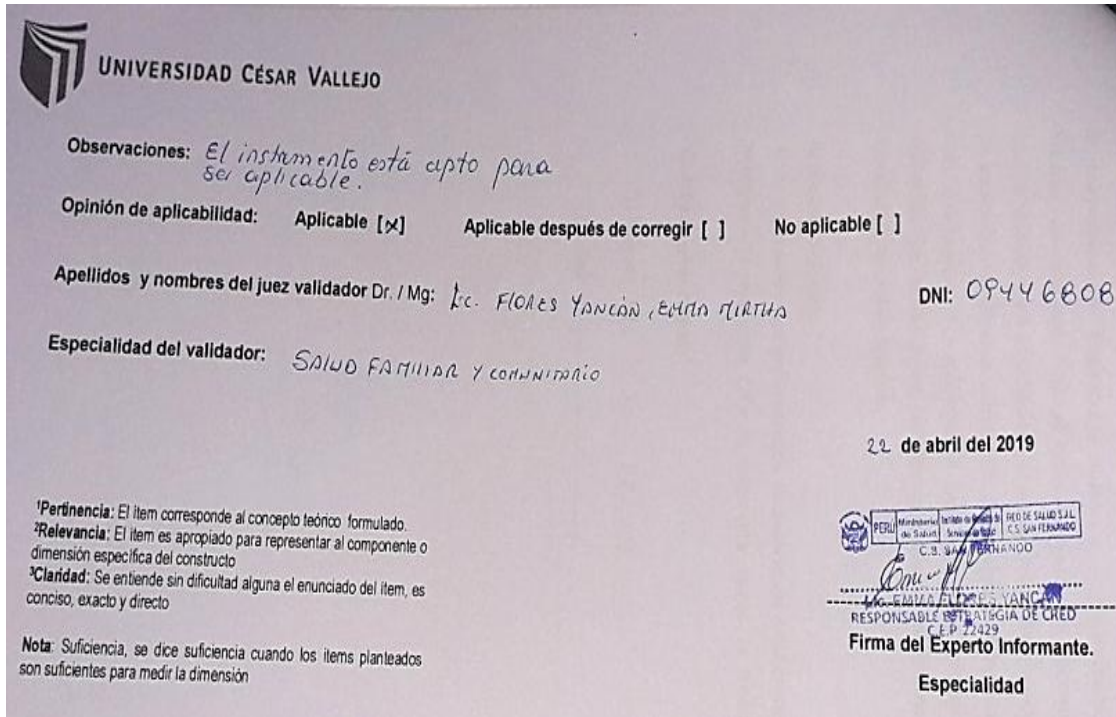 UNIVERSIDAD CÉSAR VALLEJO
Observaciones: El instrumento está apto para
ser aplicable.
Opinión de aplicabilidad: Aplicable [x] Aplicable después de corregir [ ] No aplicable [ ]
Apellidos y nombres del juez validador Dr. / Mg: Lic. FLORES YANCÁN, EMMA MIRTHA DNI: 09446808
Especialidad del validador: SALUD FAMILIAR Y COMUNITARIO
22 de abril del 2019
¹Pertinencia: El item corresponde al concepto teórico formulado.
²Relevancia: El item es apropiado para representar al componente o
dimensión específica del constructo
³Claridad: Se entiende sin dificultad alguna el enunciado del item, es
conciso, exacto y directo
Nota: Suficiencia, se dice suficiencia cuando los items planteados
son suficientes para medir la dimensión
PERÚ Ministerio de Salud RED DE SALUD S.J.L.
C.S. SAN FERNANDO
C.S. SAN FERNANDO
EMMA FLORES YANCÁN
RESPONSABLE ESTRATEGIA DE CRED
C.E.P 22429
Firma del Experto Informante.
Especialidad